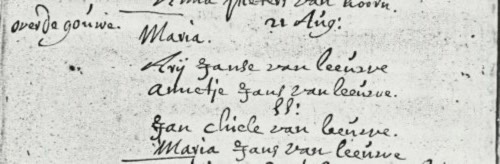 van hoorn.
21 Aug:
over de gouwe.
Maria.
Arij Janse van leeuwe
annetje Jans van leeuwe.
SS:
Jan chiele van leeuwe.
Maria Jans van leeuwe